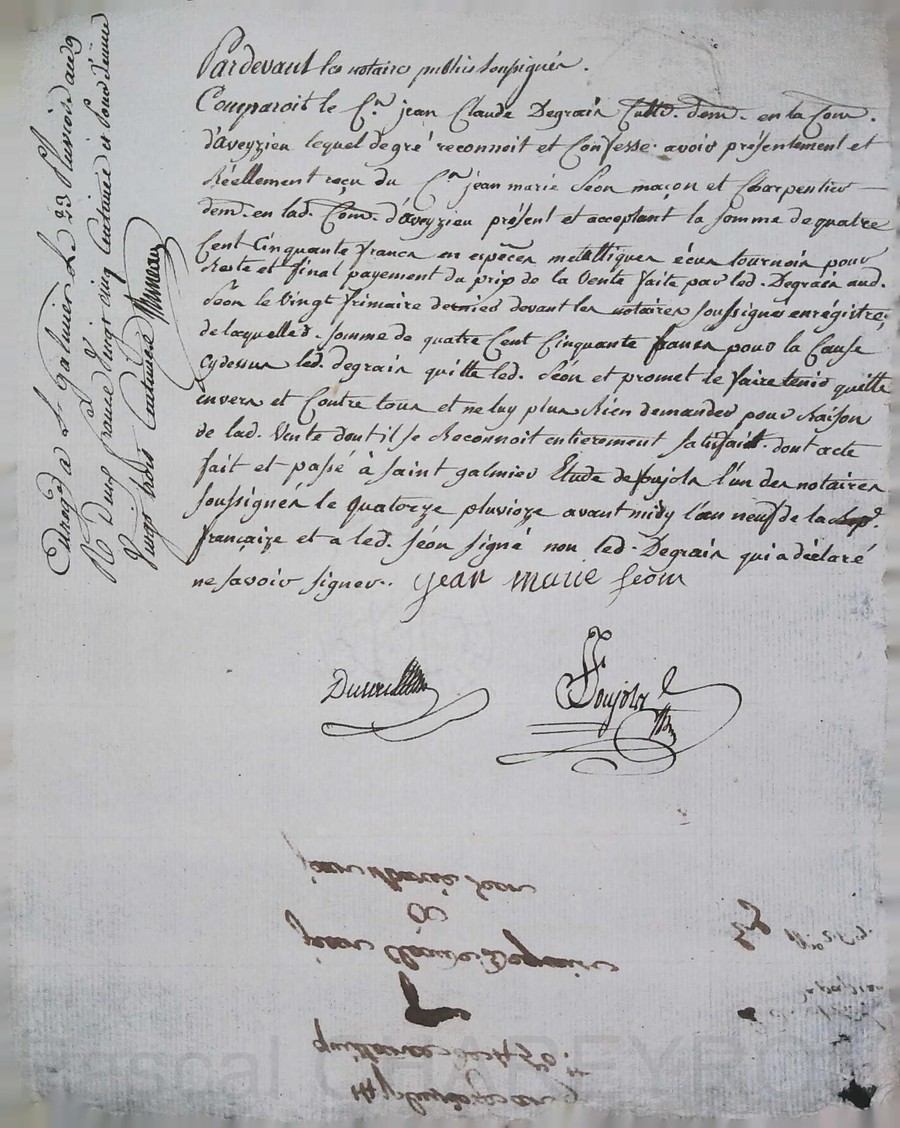 Pardevant les notaires publics soussignés.
Comparoit le C.en jean Claude Degrain Cultr. dem. en la Com.
d'aveyzieu lequel de gré reconnoit et Confesse avoir présentement et
Réellement reçu du C.en jean marie séon maçon et Charpentier
dem. en lad. Com. d'aveyzieu présent et acceptant la somme de quatre
Cent Cinquante francs en espèces metalliques écus tournois pour
Reste et final payement du prix de la Vente faite par led. Degrain aud.
Séon le vingt frimaire dernier devant les notaires soussignés enrégistré;
de laquelle d. somme de quatre Cent Cinquante francs pour la Cause
cydessus led. degrain quitte led. Séon et promet le faire tenir quitte
envers et Contre tous et ne luy plus Rien demander pour Raison
de lad. Vente dont il se Reconnoit entierement satisfait. dont acte
fait et passé à saint galmier Etude de foujols l'un des notaires
soussignés le quatorze pluvioze avant midy l'an neuf de la Rep.
françaize et a led. séon signé non led. Degrain qui a déclaré
ne savoir signer.. jean marie seon
foujols
Enregé a St. Galmier le 23 Pluviose an 9
R. Deux francs vingt cinq Centimes et pour
vingt trois Centimes
jean Marie Seon
a
jean Claude Degrain
quittance de 450.
14 pluviose an